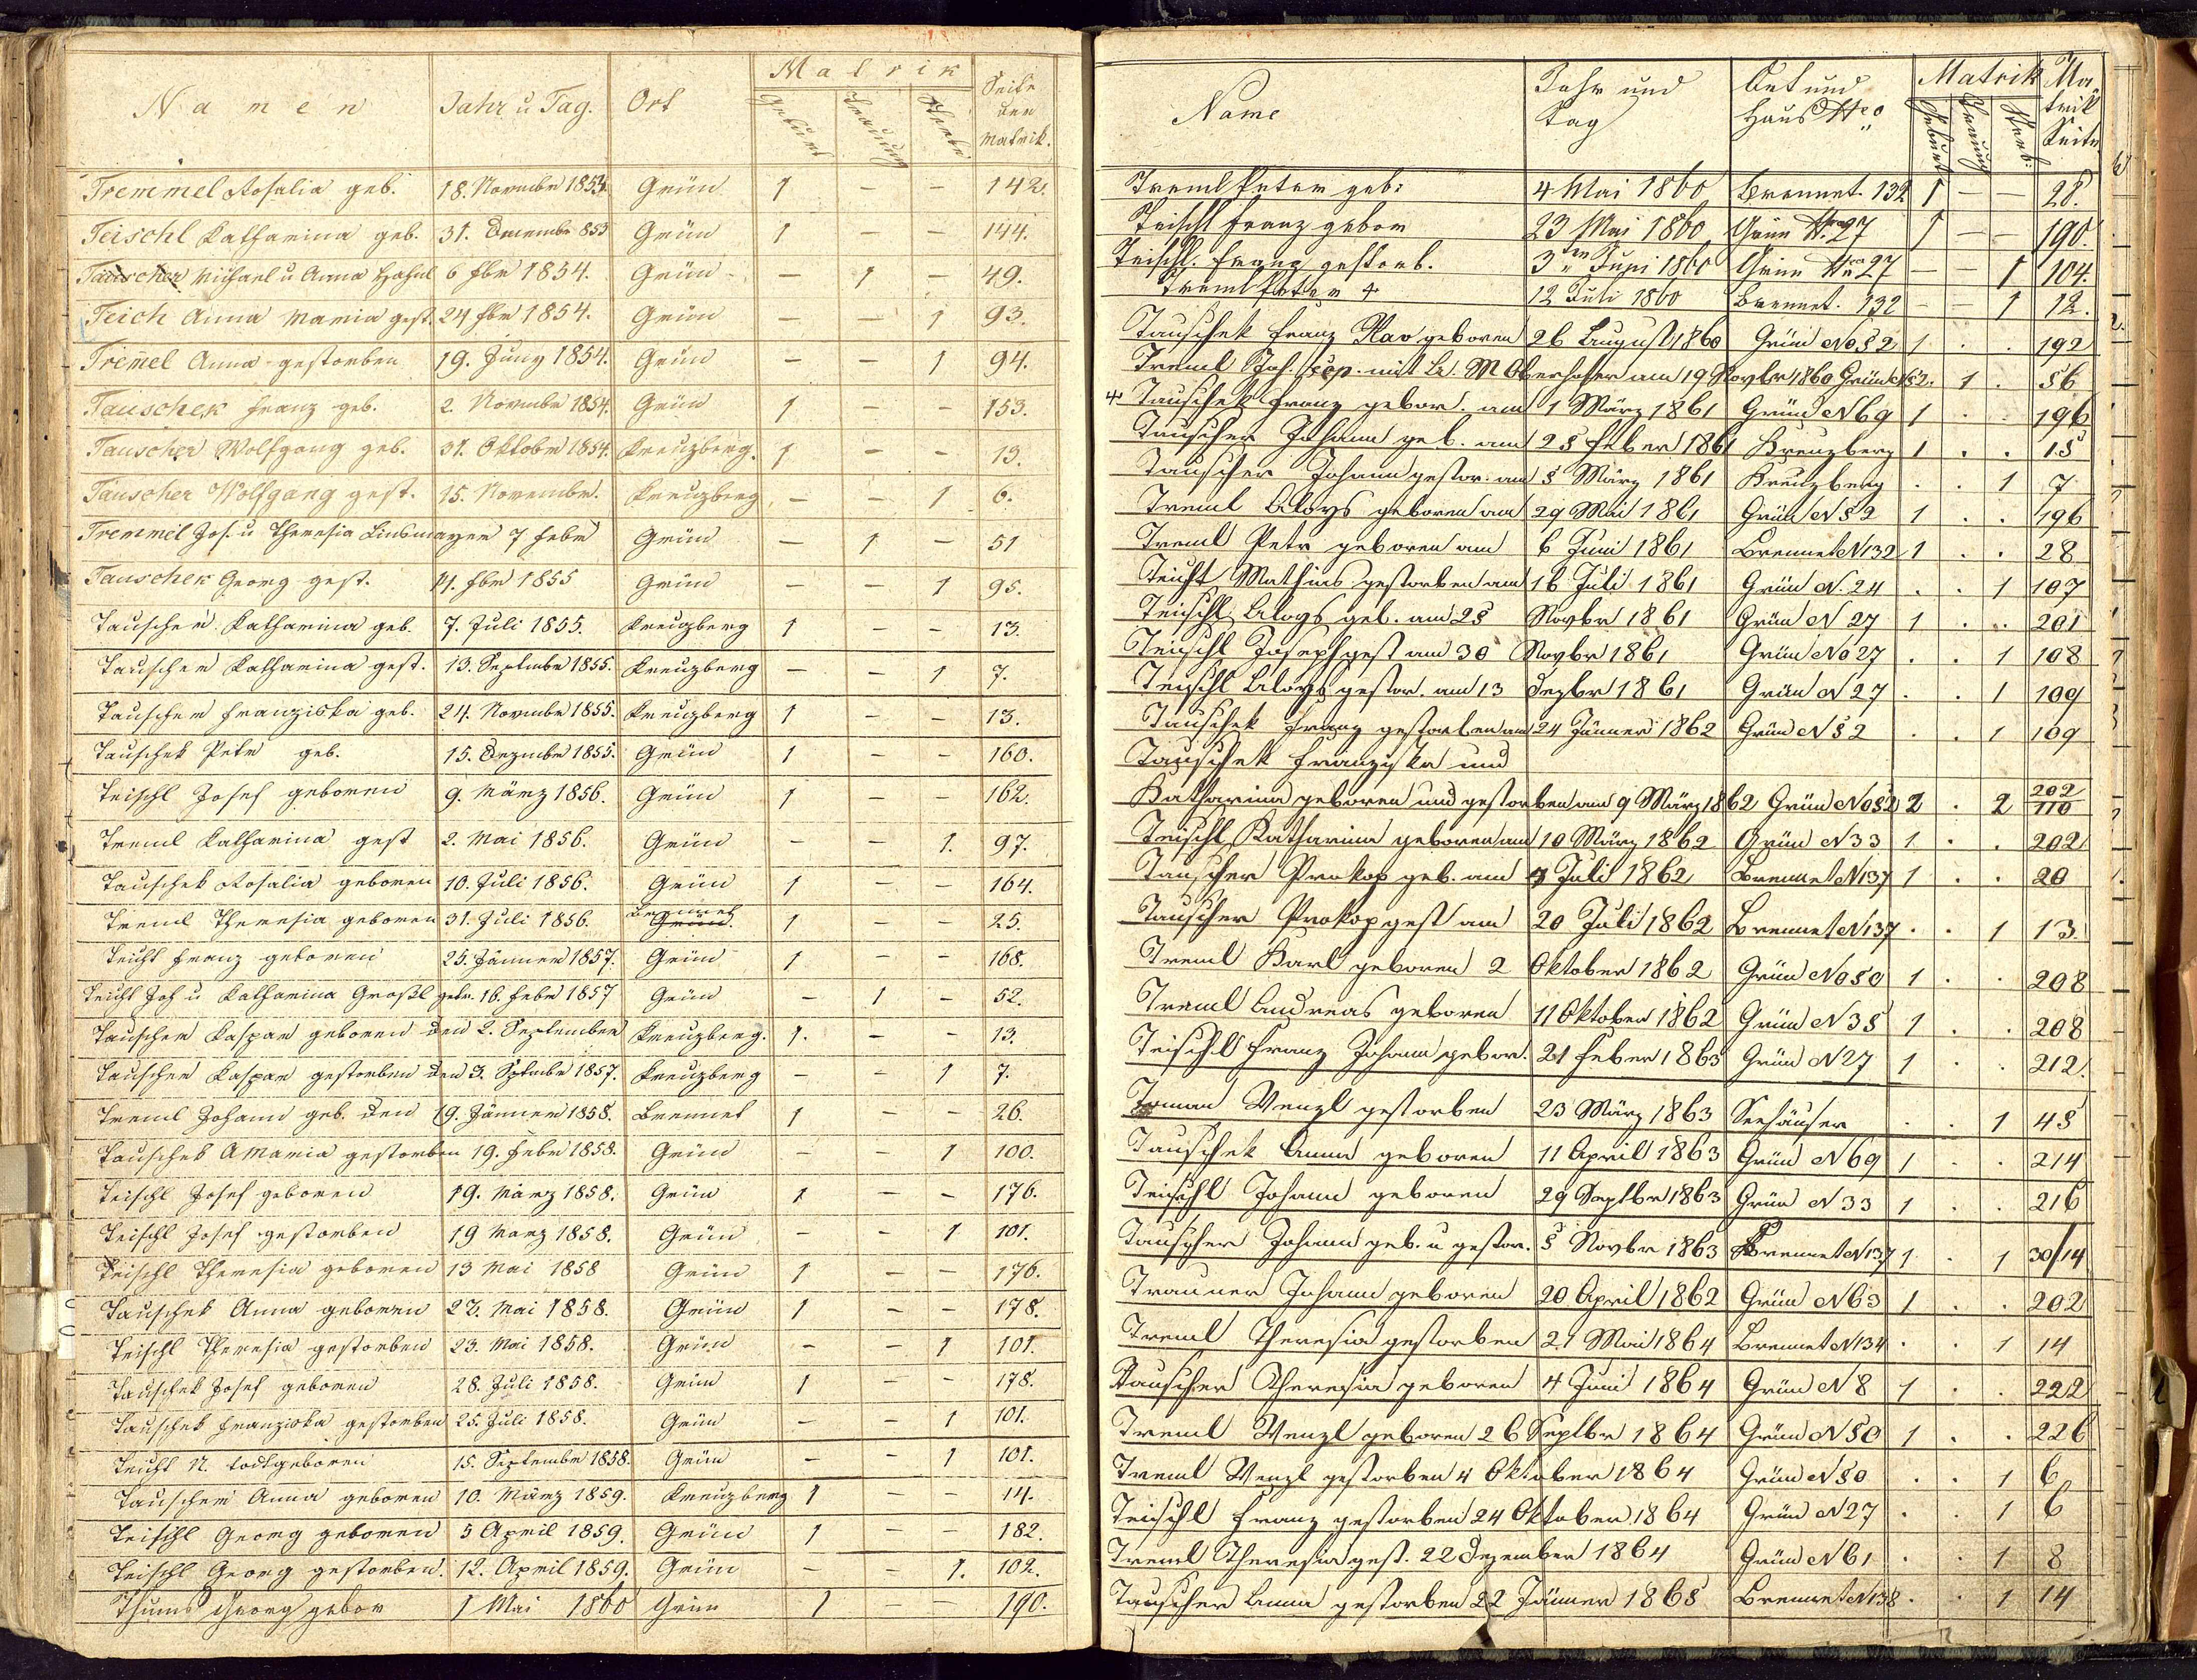 Namen Jahr u Tag. Ort Matrik Seite der Matrik.
Geburt Trauung Sterbe
Tremmel Rosalia geb. 18. Novembr 1853. Grün 1 – – 142.
Teischl Katharina geb. 31. Decembr 853 Grün 1 – – 144.
Tauscher Michael u Anna 6 fbr 1854. Grün – 1 – 49.
Teich Anna Maria gest. 24 fbr 1854. Grün – – 1 93.
Tremel Anna gestorben 19. Juny 1854. Grün – – 1 94.
Tauschek Franz geb. 2. Novembr 1854. Grün 1 – – 153.
Tauscher Wolfgang geb. 31. Oktobr 1854. Kreuzberg. 1 – – 13.
Tauscher Wolfgang gest. 15. Novembr. Kreuzberg – – 1 6.
Tremmel Jos. u Theresia Linsmayer 7 febr Grün – 1 – 51
Tauschek Georg gest. 11. fbr 1855 Grün – – 1 95.
Tauscher Katharina geb. 7. Juli 1855. Kreuzberg 1 – – 13.
Tauscher Katharina gest. 13. Septembr 1855. Kreuzberg – – 1 7.
Tauscher Franziska geb. 24. Novembr 1855. Kreuzberg 1 – – 13.
Tauschek Petr geb. 15. Dezembr 1855. Grün 1 – – 160.
Teischl Josef geboren 9. März 1856. Grün 1 – – 162.
Treml Katharina gest 2. Mai 1856. Grün – – 1. 97.
Tauschek Rosalia geboren 10. Juli 1856. Grün 1 – – 164.
Treml Theresia geboren 31. Juli 1856. Brennet Grün. 1 – – 25.
Teicht Franz geboren 25. Jänner 1857. Grün 1 – – 168.
Teicht Joh u Katharina Großl getr. 16. febr 1857 Grün – 1 – 52.
Tauscher Kaspar geboren den 2. September Kreuzberg. 1. – 13.
Tauscher Kaspar gestorben den 3. Septembr 1857. Kreuzberg – – 1 7.
Treml Johann geb. den 19. Jänner 1858. Brennet 1 – – 26.
Tauschek A Maria gestorben 19. febr 1858. Grün – – 1 100.
Teischl Josef geboren 19. März 1858. Grün 1 – – 176.
Teischl Josef gestorben 19 März 1858. Grün – – 1 101.
Teischl Theresia geboren 13 Mai 1858 Grün 1 – – 176.
Tauschek Anna geboren 22. Mai 1858. Grün 1 – – 178.
Teischl Theresia gestorben 23. Mai 1858. Grün – – 1 101.
Tauschek Josef geboren 28. Juli 1858. Grün 1 – – 178.
Tauschek Franziska gestorben 25. Juli 1858. Grün – – 1 101.
Teicht N. todtgeboren 15. Septembr 1858. Grün – – 1 101.
Tauscher Anna geboren 10. März 1859. Kreuzberg 1 – – 14.
Teischl Georg geboren 5 April 1859. Grün 1 – – 182.
Teischl Georg gestorben. 12. April 1859. Grün – – 1. 102.
Thums Georg gebor 1 Mai 1860 Grün 1 – – 190.
Name Jahr und Tag Ort und Haus Nro Matrik Matrik Seite
Geburt Trauung Sterb:
Treml Peter geb: 4 Mai 1860 Brennet. 132 1 – – 28.
Teischl Franz gebor 23 Mai 1860 Grün Nro 27 1 – – 190.
Teischl. Franz gestorb. 3 Juni 1860 Grün Nro 27 – – 1 104.
Treml Peter + 12 Juli 1860 Brennet. 132 – – 1 12.
Tauschek Franz geboren 26 August 1860 Grün No 52 1 . . 192
Treml Joh. cop. mit A. M Oberhofer am 19 Novbr 1860 Grün N 52. 1 . 56
+ Tauschek Franz gebor. am 1 März 1861 Grün N 69 1 . . 196
Tauscher Johann geb. am 25 Feber 1861 Kreuzberg 1 . . 15
Tauscher Johann gestor. am 5 März 1861 Kreuzberg . . 1 7
Treml Aloys geboren am 29 Mai 1861 Grün N 52 1 . . 196
Treml Petr geboren am 6 Juni 1861 Brennet N 132 1 . . 28
Teicht Mathias gestorben am 16 Juli 1861 Grün N. 24 . . 1 107
Teischl Aloys geb. am 25 Novbr 1861 Grün N 27 1 . . 201
Teischl Joseph gest am 30 Novbr 1861 Grün No 27 . . 1 108
Teischl Aloys gestor. am 13 Dezbr 1861 Grün N 27 . . 1 109
Tauschek Franz gestorben am 24 Jänner 1862 Grün N 52 . . 1 109
Tauschek Franziska und
Katharina geboren und gestorben am 9 März 1862 Grün No 52 2 . 2 202/110
Teischl Katharina geboren am 10 März 1862 Grün N 33 1 . . 202
Tauscher Prokop geb. am 4 Juli 1862 Brennet N 137 1 . . 20
Tauscher Prokop gest am 20 Juli 1862 Brennet N 137 . . 1 13.
Treml Karl geboren 2 Oktober 1862 Grün No 50 1 . . 208
Treml Andreas geboren 11 Oktober 1862 Grün N 35 1 . . 208
Teischl Franz Johann gebor. 21 Feber 1863 Grün N 27 1 . . 212.
Toman Wenzl gestorben 23 März 1863 Seehäuser . . 1 45
Tauschek Anna geboren 11 April 1863 Grün N 69 1 . . 214
Teischl Johann geboren 29 Septbr 1863 Grün N 33 1 . . 216
Tauscher Johann geb. u gestor. 5 Novbr 1863 Brennet N 137 1 . 1 30/14
Trauner Johann geboren 20 April 1862 Grün N 63 1 . . 202
Treml Theresia gestorben 21 Mai 1864 Brennet N 134 . . 1 14
Tauscher Theresia geboren 4 Juni 1864 Grün N 8 1 . . 222
Treml Wenzl geboren 26 Septbr 1864 Grün N 50 1 . . 226
Treml Wenzl gestorben 4 Oktober 1864 Grün N 50 . . 1 6
Teischl Franz gestorben 24 Oktober 1864 Grün N 27 . . 1 6
Treml Theresia gest. 22 Dezember 1864 Grün N 61 . . 1 8
Tauscher Anna gestorben 22 Jänner 1865 Brennet N 138 . . 1 14